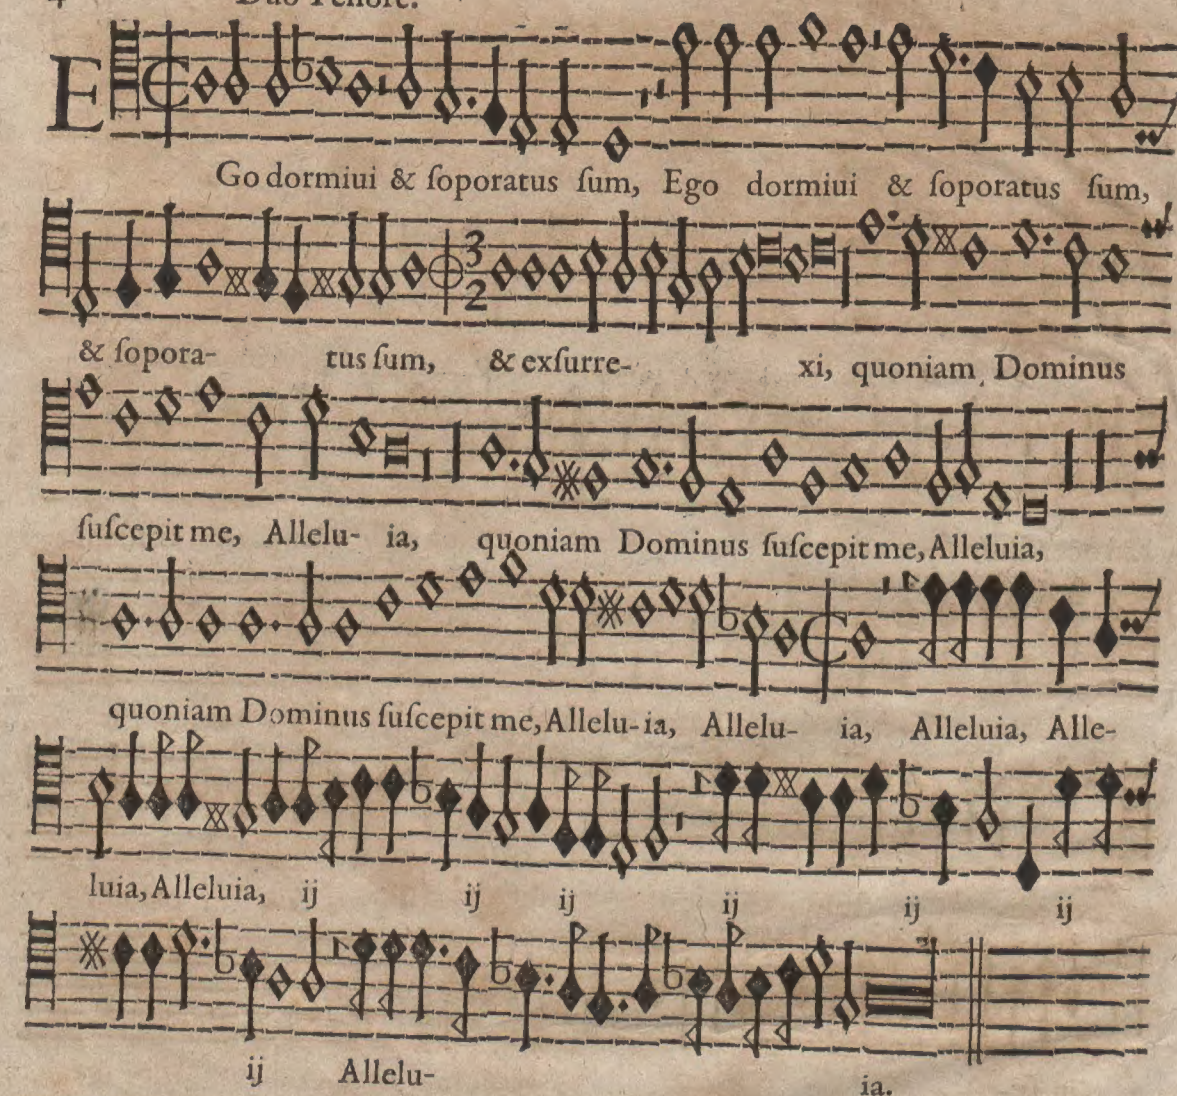 Duo Tenore.
E
Go dormiui & ſoporatus ſum, Ego dormiui & ſoporatus ſum,
3
2
& ſopora- tus ſum, & exſurre- xi, quoniam Dominus
ſuſcepit me, Allelu- ia, quoniam Dominus ſuſcepit me, Alleluia,
quoniam Dominus ſuſcepit me, Allelu-ia, Allelu- ia, Alleluia, Alle-
luia, Alleluia, ij ij ij ij ij ij
ij Allelu- ia.